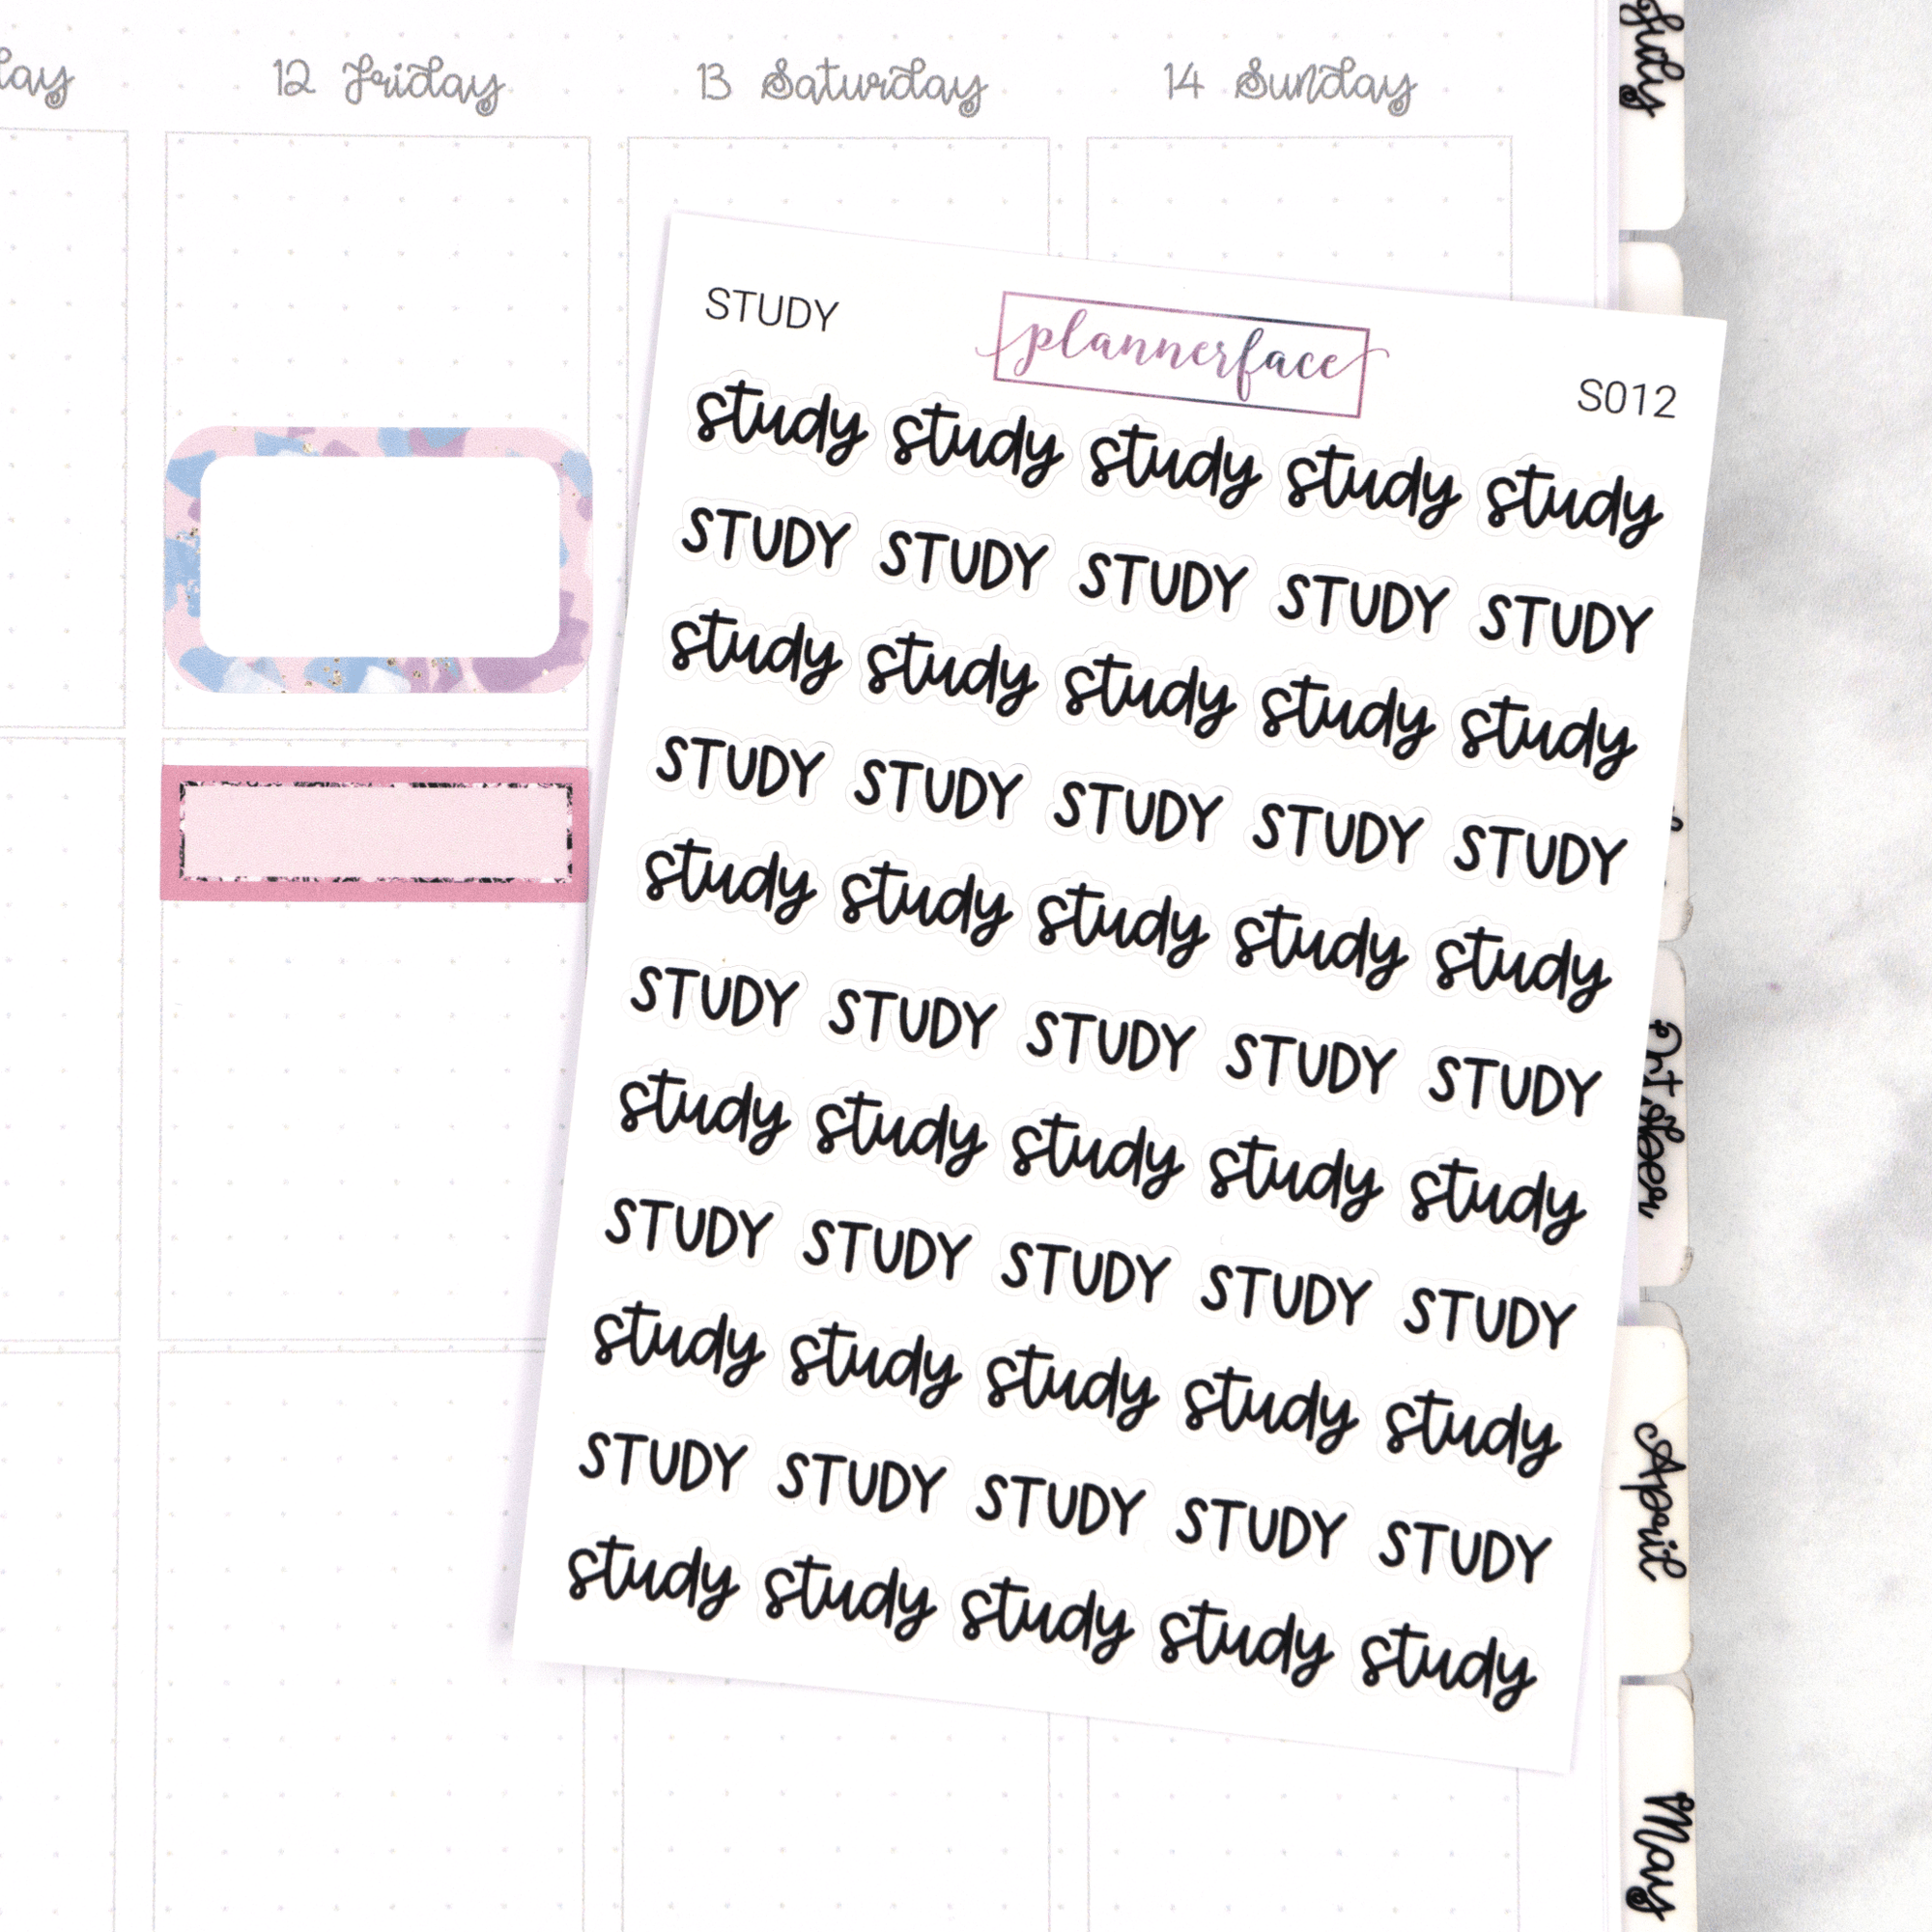 12 Friday 13 Saturday 14 Sunday
STUDY
plannerface
S012
study study study study study
STUDY STUDY STUDY STUDY STUDY
study study study study study
STUDY STUDY STUDY STUDY STUDY
study study study study study
STUDY STUDY STUDY STUDY STUDY
study study study study study
STUDY STUDY STUDY STUDY STUDY
study study study study study
STUDY STUDY STUDY STUDY STUDY
study study study study study
April
May